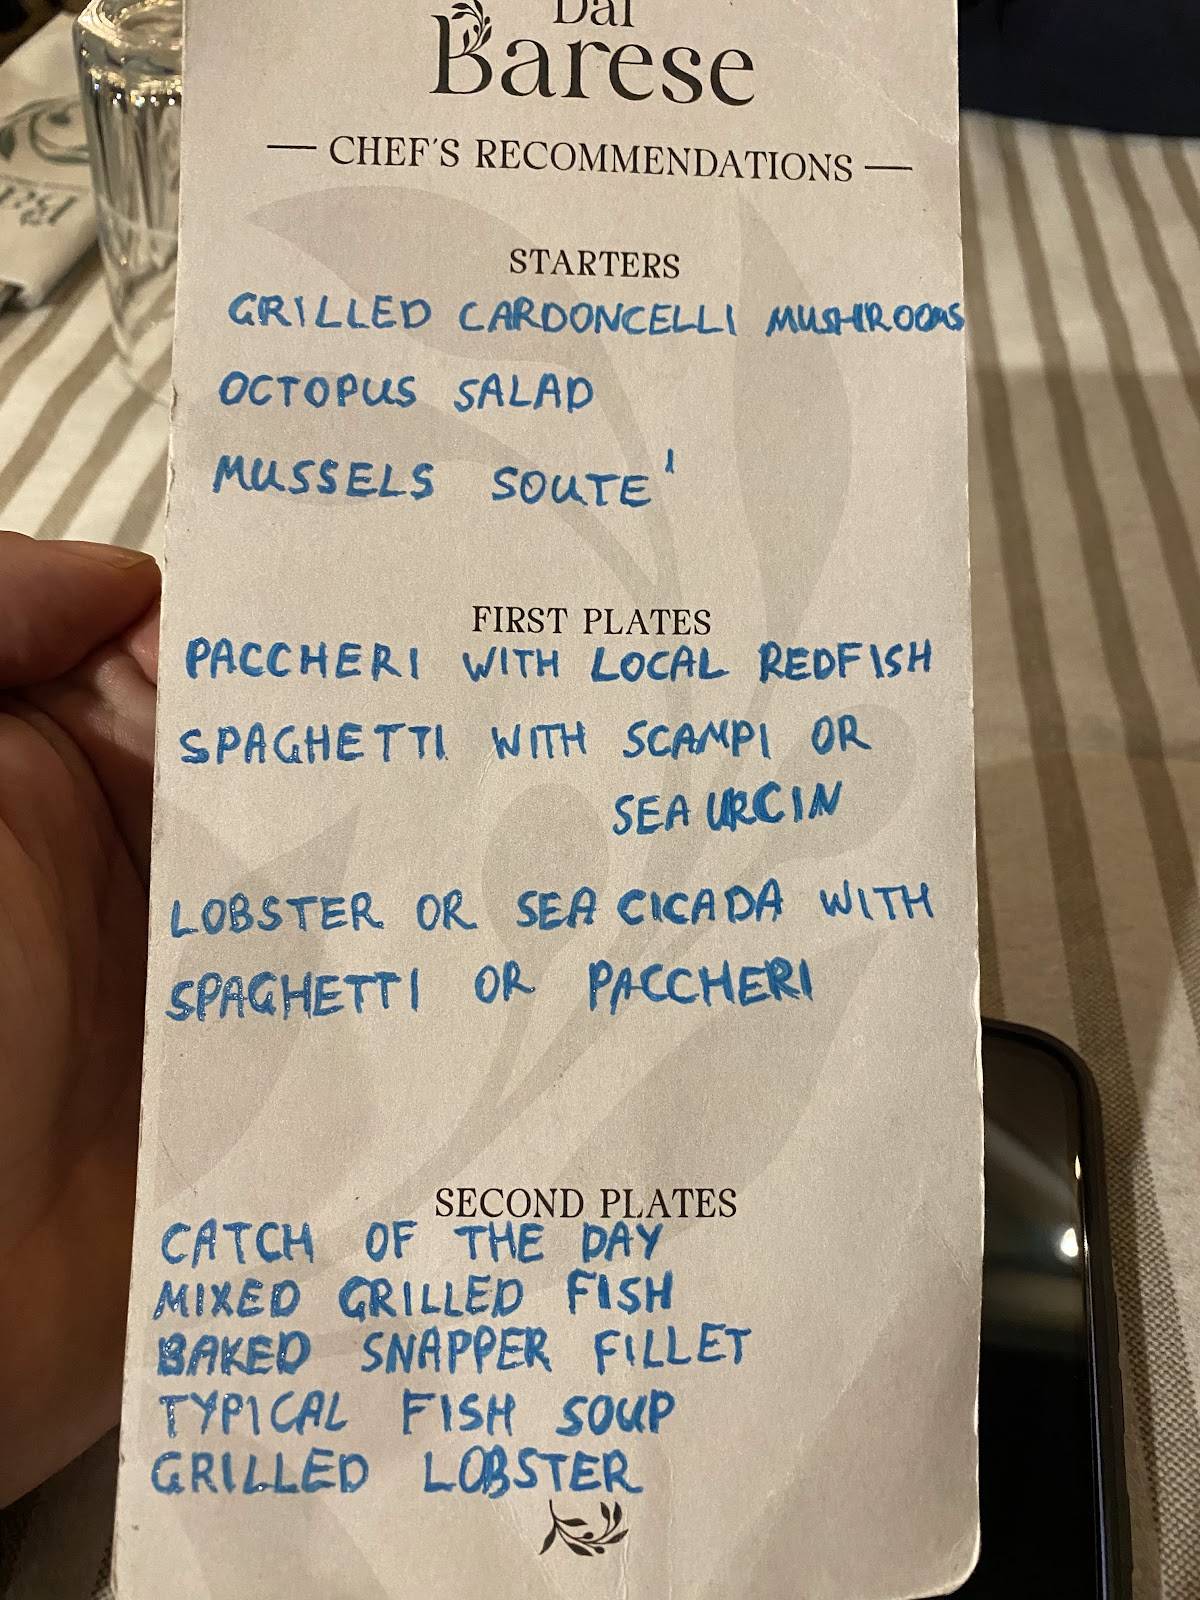 Dal
Barese
— CHEF'S RECOMMENDATIONS —
STARTERS
GRILLED CARDONCELLI MUSHROOMS
OCTOPUS SALAD
MUSSELS SOUTE'
FIRST PLATES
PACCHERI WITH LOCAL REDFISH
SPAGHETTI WITH SCAMPI OR
SEA URCIN
LOBSTER OR SEA CICADA WITH
SPAGHETTI OR PACCHERI
SECOND PLATES
CATCH OF THE DAY
MIXED GRILLED FISH
BAKED SNAPPER FILLET
TYPICAL FISH SOUP
GRILLED LOBSTER